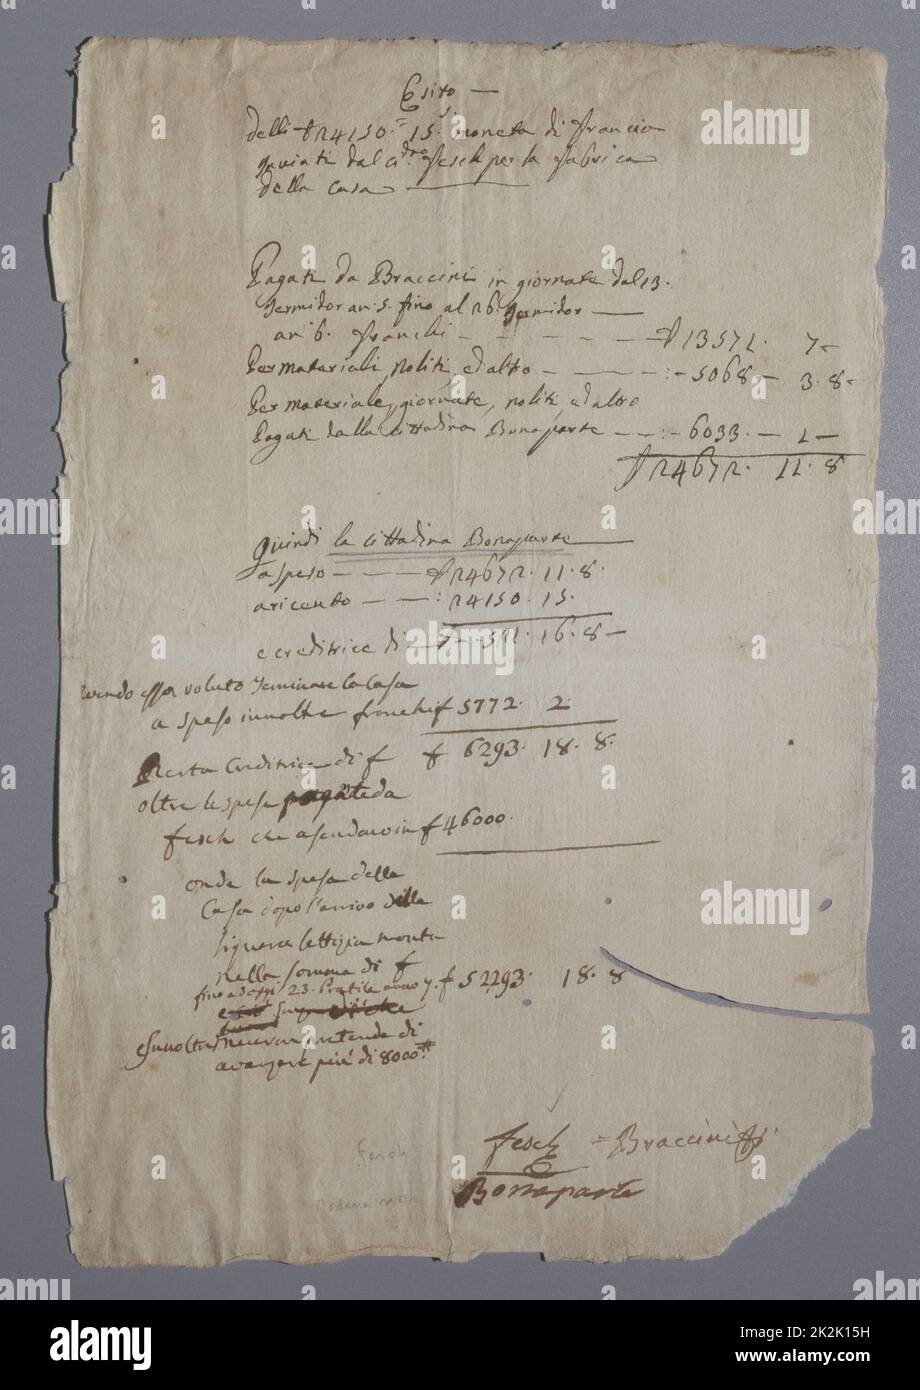 Esito —
delli ₶ 24150. 15 s. moneta di Francia
Inviati dal Citt.dno Fesch per la Fabrica
della casa —
Pagati da Braccini in giornate dal 13.
Termidor an. 5. fino al 26. Termidor —
an 6. Franchi — — — — — ₶ 13571. 7 —
Per materiali, noliti, ed altro — — — — : — 5068 — 3. 8 —
Per materiale, giornate, noliti, ed altro
Pagati dalla Cittadina Bonaparte — — : — 6033. — 1 —
₶ 24672. 11. 8
Quindi la cittadina Bonaparte —
a speso — — — ₶ 24672. 11. 8.
a riceuto — — — : 24150. 15.
e creditrice di — ₶ — 521. 16. 8 —
avendo essa voluto terminare la Casa
a speso innoltre franchi f 5772. 2
Resta Creditrice di f f 6293. 18. 8.
oltre le spese pagate da
fesch che asendavo in f 46000.
onde la spesa della
Casa dopo l'arrivo della
signora lettizia monta
nella somma di f
fino ad oggi 23. Pratile anno 7. f 52293. 18. 8
e innoltre pretende di
avanzare più di 8000 ₶
fesch = Braccini
Bonaparte
fesch
Madame mère
alamy
Image ID: 2K2K15H
www.alamy.com